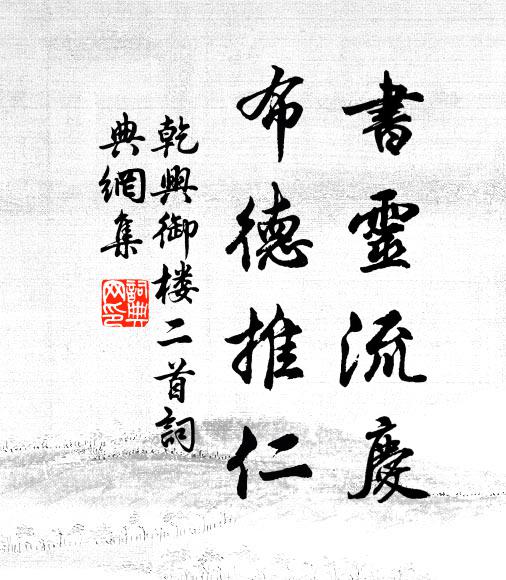 書靈流慶
布德推仁
乾興御楼二首詞
典網集
詞典網印